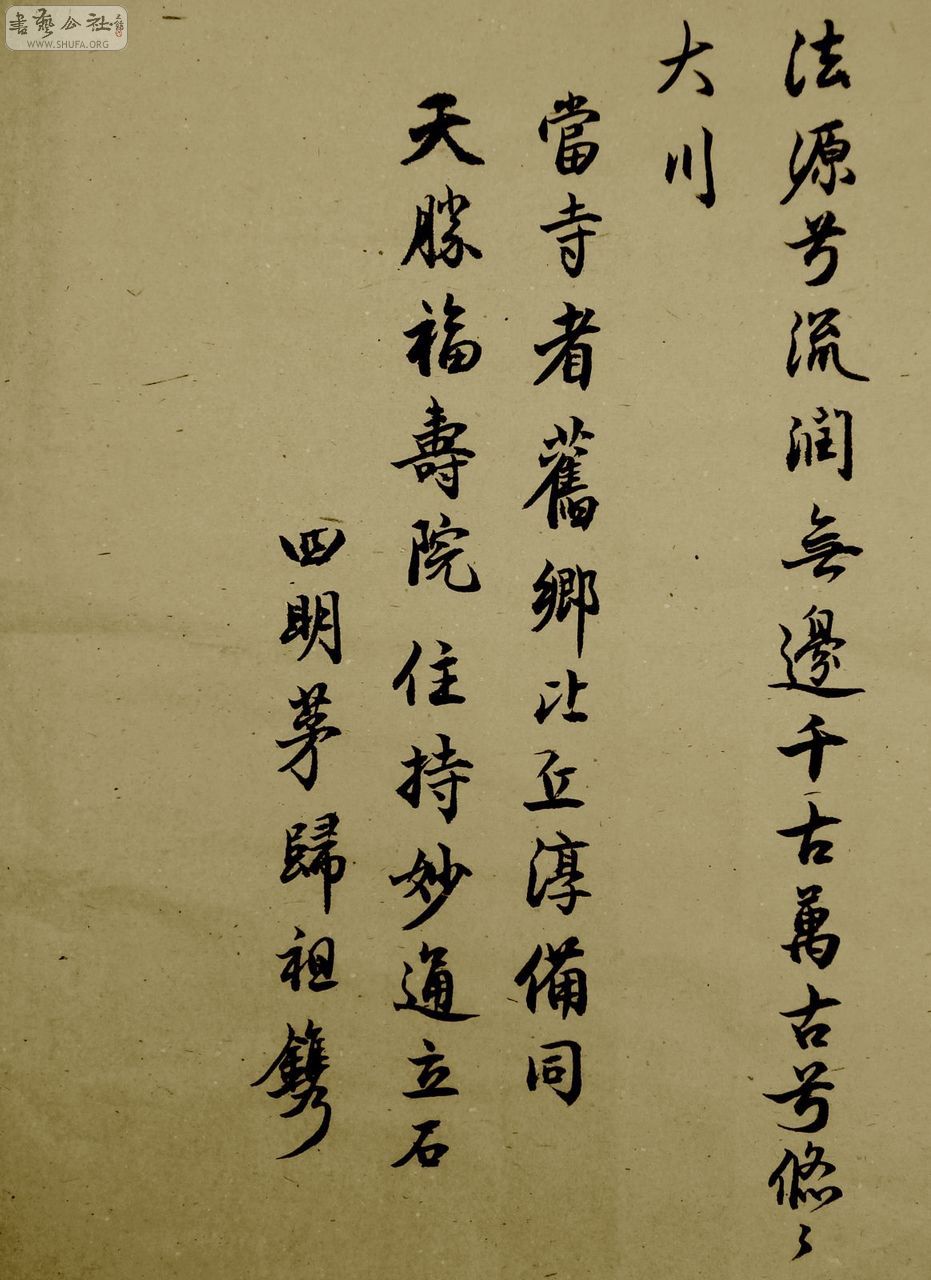 法源兮流润無邊千古萬古兮悠〻
大川
當寺者舊鄉比丘淳備同
天勝福壽院住持妙通立石
四明茅歸祖鐫
書藝公社
WWW.SHUFA.ORG